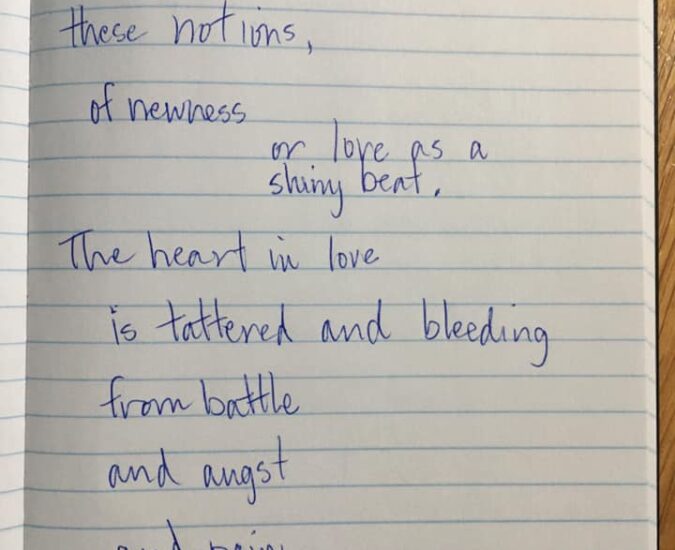 these notions,
of newness
or love as a
shiny beat.
The heart in love
is tattered and bleeding
from battle
and angst
and